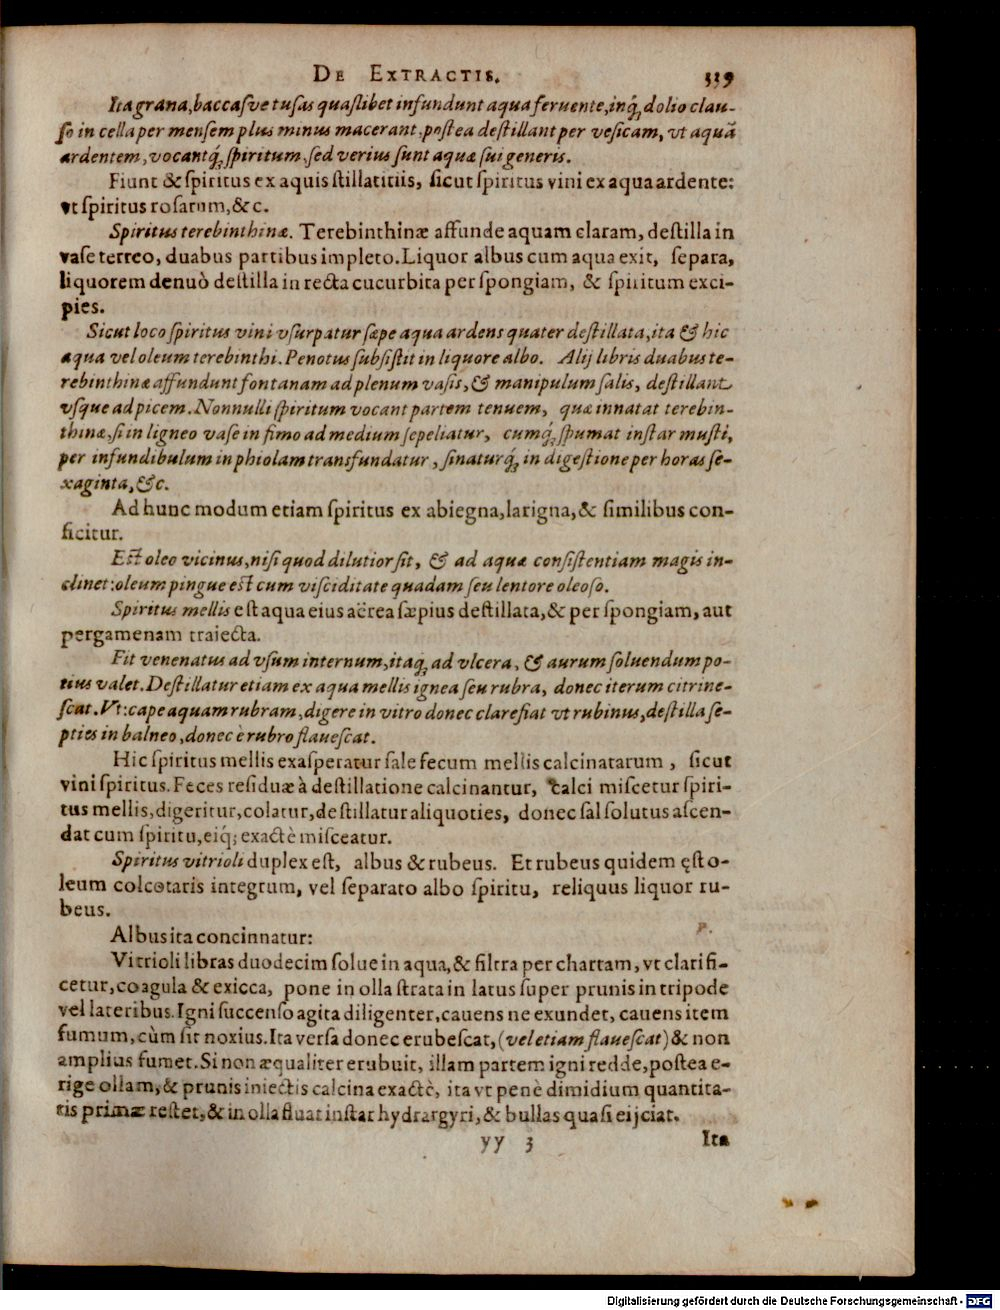 DE EXTRACTIS. 359
Ita grana, baccasve tusas quaslibet infundunt aqua feruente, inq́; dolio clau-
so in cella per mensem plus minus macerant, postea destillant per vesicam, vt aquã
ardentem, vocantq́; spiritum, sed verius sunt aquæ sui generis.
Fiunt & spiritus ex aquis stillatitiis, sicut spiritus vini ex aqua ardente:
vt spiritus rosarum, &c.
Spiritus terebinthinæ. Terebinthinæ affunde aquam claram, destilla in
vase terreo, duabus partibus impleto. Liquor albus cum aqua exit, separa,
liquorem denuò destilla in recta cucurbita per spongiam, & spiritum exci-
pies.
Sicut loco spiritus vini vsurpatur sæpe aqua ardens quater destillata, ita & hic
aqua vel oleum terebinthi. Penotus subsistit in liquore albo. Alij libris duabus te-
rebinthinæ affundunt fontanam ad plenum vasis, & manipulum salis, destillant
vsque ad picem. Nonnulli spiritum vocant partem tenuem, quæ innatat terebin-
thinæ, si in ligneo vase in fimo ad medium sepeliatur, cumq́; spumat instar musti,
per infundibulum in phiolam transfundatur, sinaturq́; in digestione per horas se-
xaginta, &c.
Ad hunc modum etiam spiritus ex abiegna, larigna, & similibus con-
ficitur.
Est oleo vicinus, nisi quod dilutior sit, & ad aquæ consistentiam magis in-
clinet: oleum pingue est cum visciditate quadam seu lentore oleoso.
Spiritus mellis est aqua eius aërea sæpius destillata, & per spongiam, aut
pergamenam traiecta.
Fit venenatus ad vsum internum, itaq; ad vlcera, & aurum soluendum po-
tius valet. Destillatur etiam ex aqua mellis ignea seu rubra, donec iterum citrine-
scat. Vt: cape aquam rubram, digere in vitro donec clarefiat vt rubinus, destilla se-
pties in balneo, donec è rubro flauescat.
Hic spiritus mellis exasperatur sale fecum mellis calcinatarum, sicut
vini spiritus. Feces residuæ à destillatione calcinantur, calci miscetur spiri-
tus mellis, digeritur, colatur, destillatur aliquoties, donec sal solutus ascen-
dat cum spiritu, eiq́; exactè misceatur.
Spiritus vitrioli duplex est, albus & rubeus. Et rubeus quidem ęst o-
leum colcotaris integrum, vel separato albo spiritu, reliquus liquor ru-
beus.
Albus ita concinnatur:
Vitrioli libras duodecim solue in aqua, & filtra per chartam, vt clarifi-
cetur, coagula & exicca, pone in olla strata in latus super prunis in tripode
vel lateribus. Igni succenso agita diligenter, cauens ne exundet, cauens item
fumum, cùm sit noxius. Ita versa donec erubescat, (vel etiam flauescat) & non
amplius fumet. Si non æqualiter erubuit, illam partem igni redde, postea e-
rige ollam, & prunis iniectis calcina exactè, ita vt penè dimidium quantita-
tis primæ restet, & in olla fluat instar hydrargyri, & bullas quasi eijciat.
yy 3 Ita
Digitalisierung gefördert durch die Deutsche Forschungsgemeinschaft - DFG